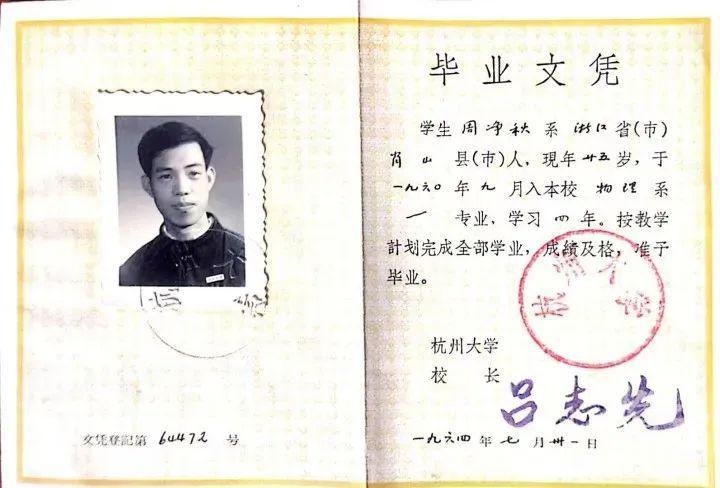 文凭登記第 64472 号
毕业文凭
学生周净秋系浙江省(市)
肖山县(市)人，現年廿五岁，于
一九六〇年九月入本校物理系
/ 专业，学习四年。按教学
計划完成全部学业，成績及格，准予
毕业。
杭州大学
校 长
吕志先
一九六四年七月卅一日
杭州大学